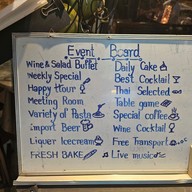 Event Board
Wine & Salad Buffet
Weekly Special
Happy Hour
Meeting Room
Variety of Pasta
Import Beer
Liquor Icecream
FRESH BAKE
Daily Cake
Best Cocktail
Thai Selected
Table game
Special coffee
Wine Cocktail
Free Transport
Live music